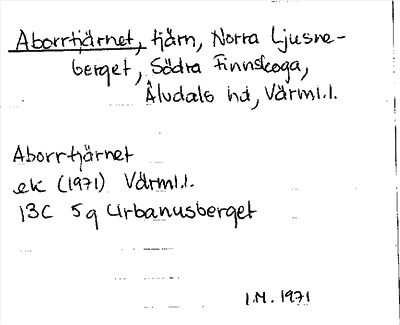 Aborrtjärnet, tjärn, Norra Ljusne-
berget, Södra Finnskoga,
Älvdals hd, Värml.l.
Aborrtjärnet
ek (1971) Värml.l.
13C 5g Urbanusberget
I.M. 1971